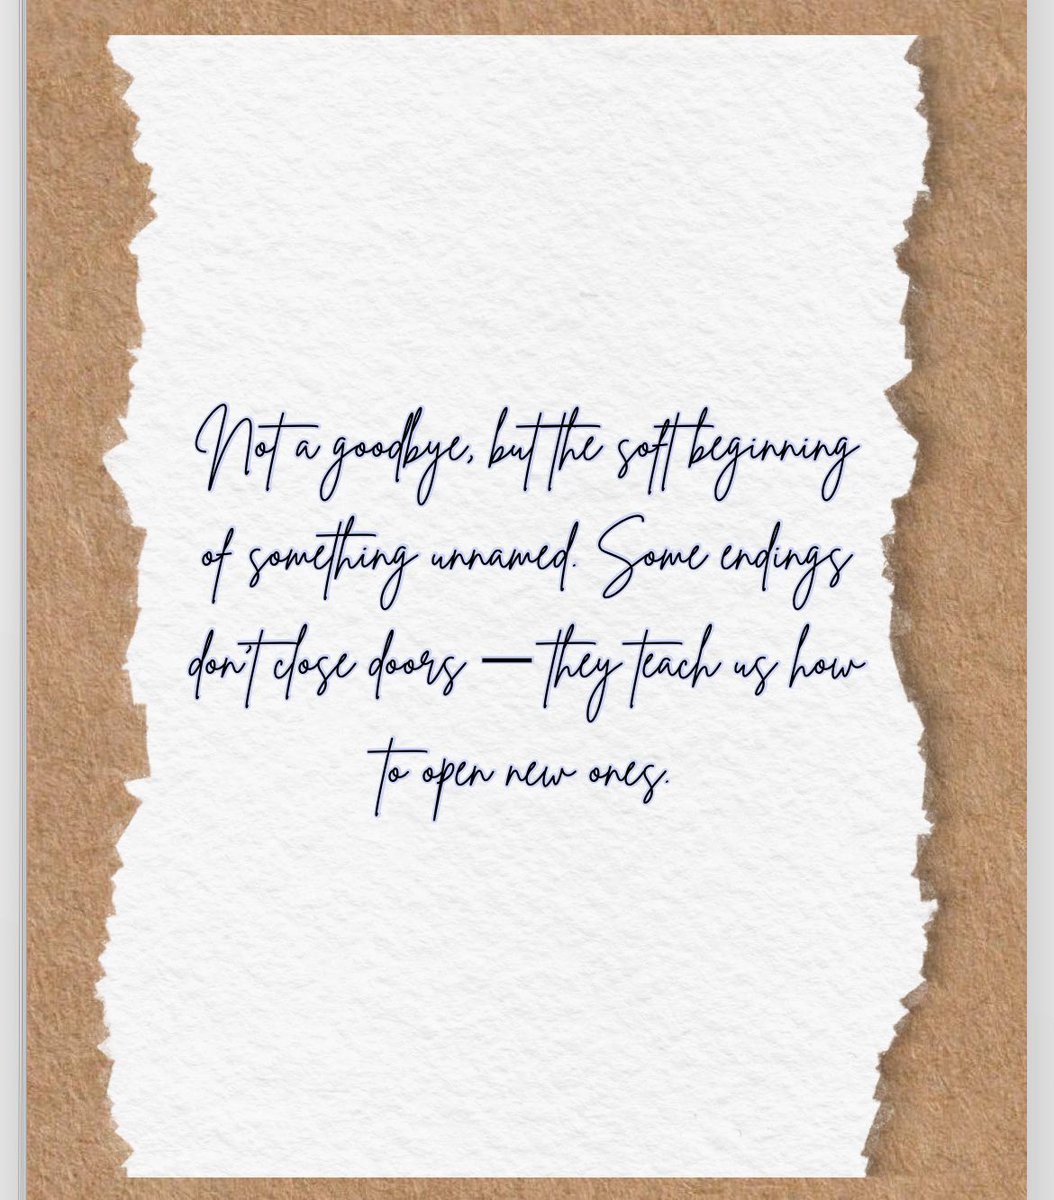 Not a goodbye, but the soft beginning
of something unnamed. Some endings
don't close doors — they teach us how
to open new ones.